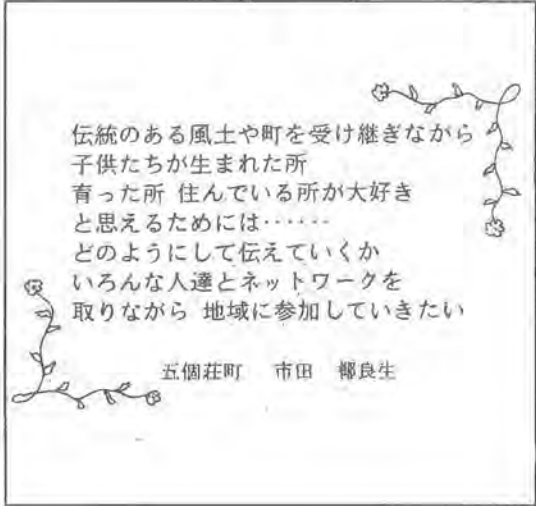 伝統のある風土や町を受け継ぎながら
子供たちが生まれた所
育った所 住んでいる所が大好き
と思えるためには‥‥‥
どのようにして伝えていくか
いろんな人達とネットワークを
取りながら 地域に参加していきたい
五個荘町 市田 椰良生